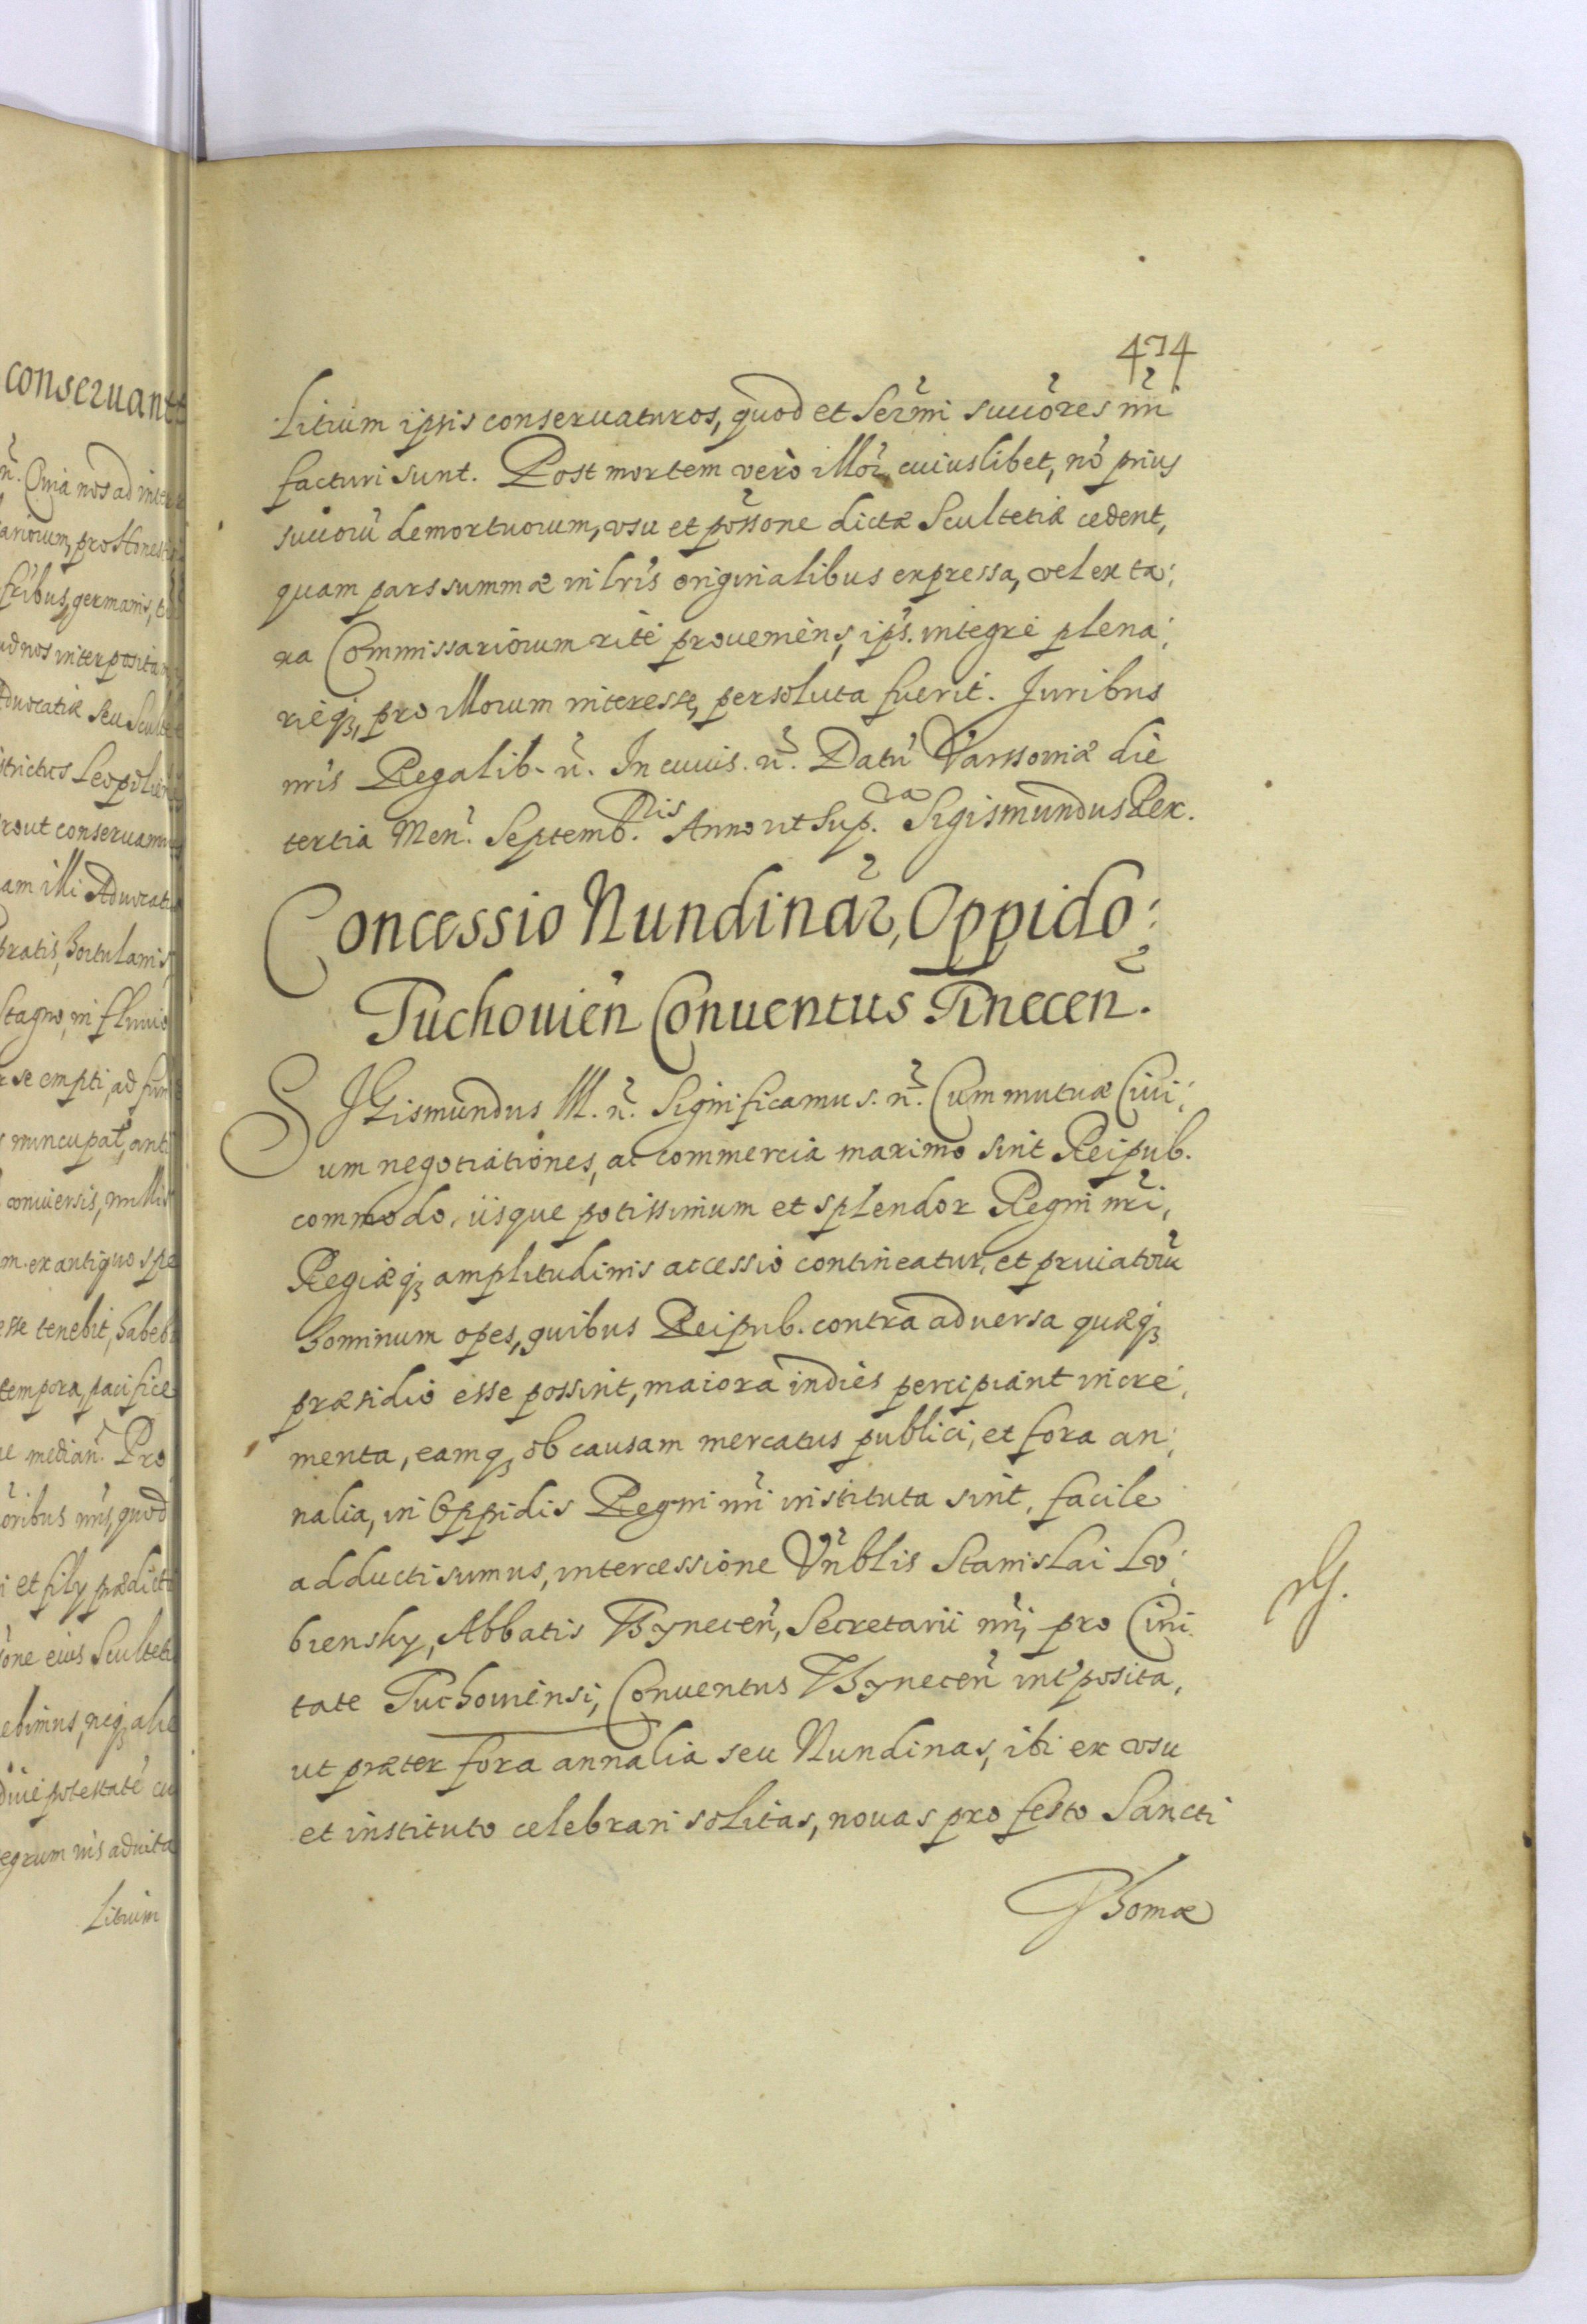 conseruant
n. Quia nos ad inst
ariorum, pro Honest
fribus, germanis,
ad nos interposita
Aduocatiæ seu Scult
strictus Leopolien
rout conseruam
am illi Aduocat
pratis, hortulanis
stagno, in fluuio
se empti, ad
nuncupat, ant
conuersis, nullis
m ex antiquo
esse tenebit, habeb
tempora, pacifice
median. Pro
oribus nris, quod
i et filij prædicti
one eius Scultet
ebimus, neq, alie
potestate
egrum ius aduita
Litium
474
Litium ipsis conseruaturos, quod et Sermi suuores nri
facturi sunt. Post mortem verò illor, cuiuslibet, nō prius
suuorū demortuorum, vsu et possone dictæ Scultetiæ cedent,
quam pars summæ in lris originalibus expressa, vel ex ta:
xa Commissariorum ritè proueniens, ips. integrè plena:
rièq₃, pro illorum interesse, persoluta fuerit. Juribus
nris Regalib. n. In cuuis. n. Datū Varssouiæ die
tertia Men. Septemb.ris Anno vt sup.ra Sigismundus Rex.
Concessio Nundinar, Oppido:
Tuchouień Conuentus Tinecen.
SIGismundus III. n. Significamus. n. Cum mutuæ Ciui:
um negotiationes, ac commercia maximo sint Reipub.
commodo, iisque potissimum et splendor Regni nri,
Regiæq₃ amplitudinis accessio contineatur, et priuatorū
hominum opes, quibus Reipub. contra aduersa quæq₃
præsidio esse possint, maiora indiès percipiant incre:
menta, eamq₃ ob causam mercatus publici, et fora an:
nalia, in Oppidis Regni nri instituta sint, facile
adducti sumus, intercessione Vnblis Stanislai Lu:
biensky, Abbatis Thynecen, Secretarii nri, pro Ciui:
tate Tuchouiensi, Conuentus Thynecen intposita,
ut præter fora annalia seu Nundinas, ibi ex vsu
et instituto celebrari solitas, nouas pro festo Sancti
Thomæ